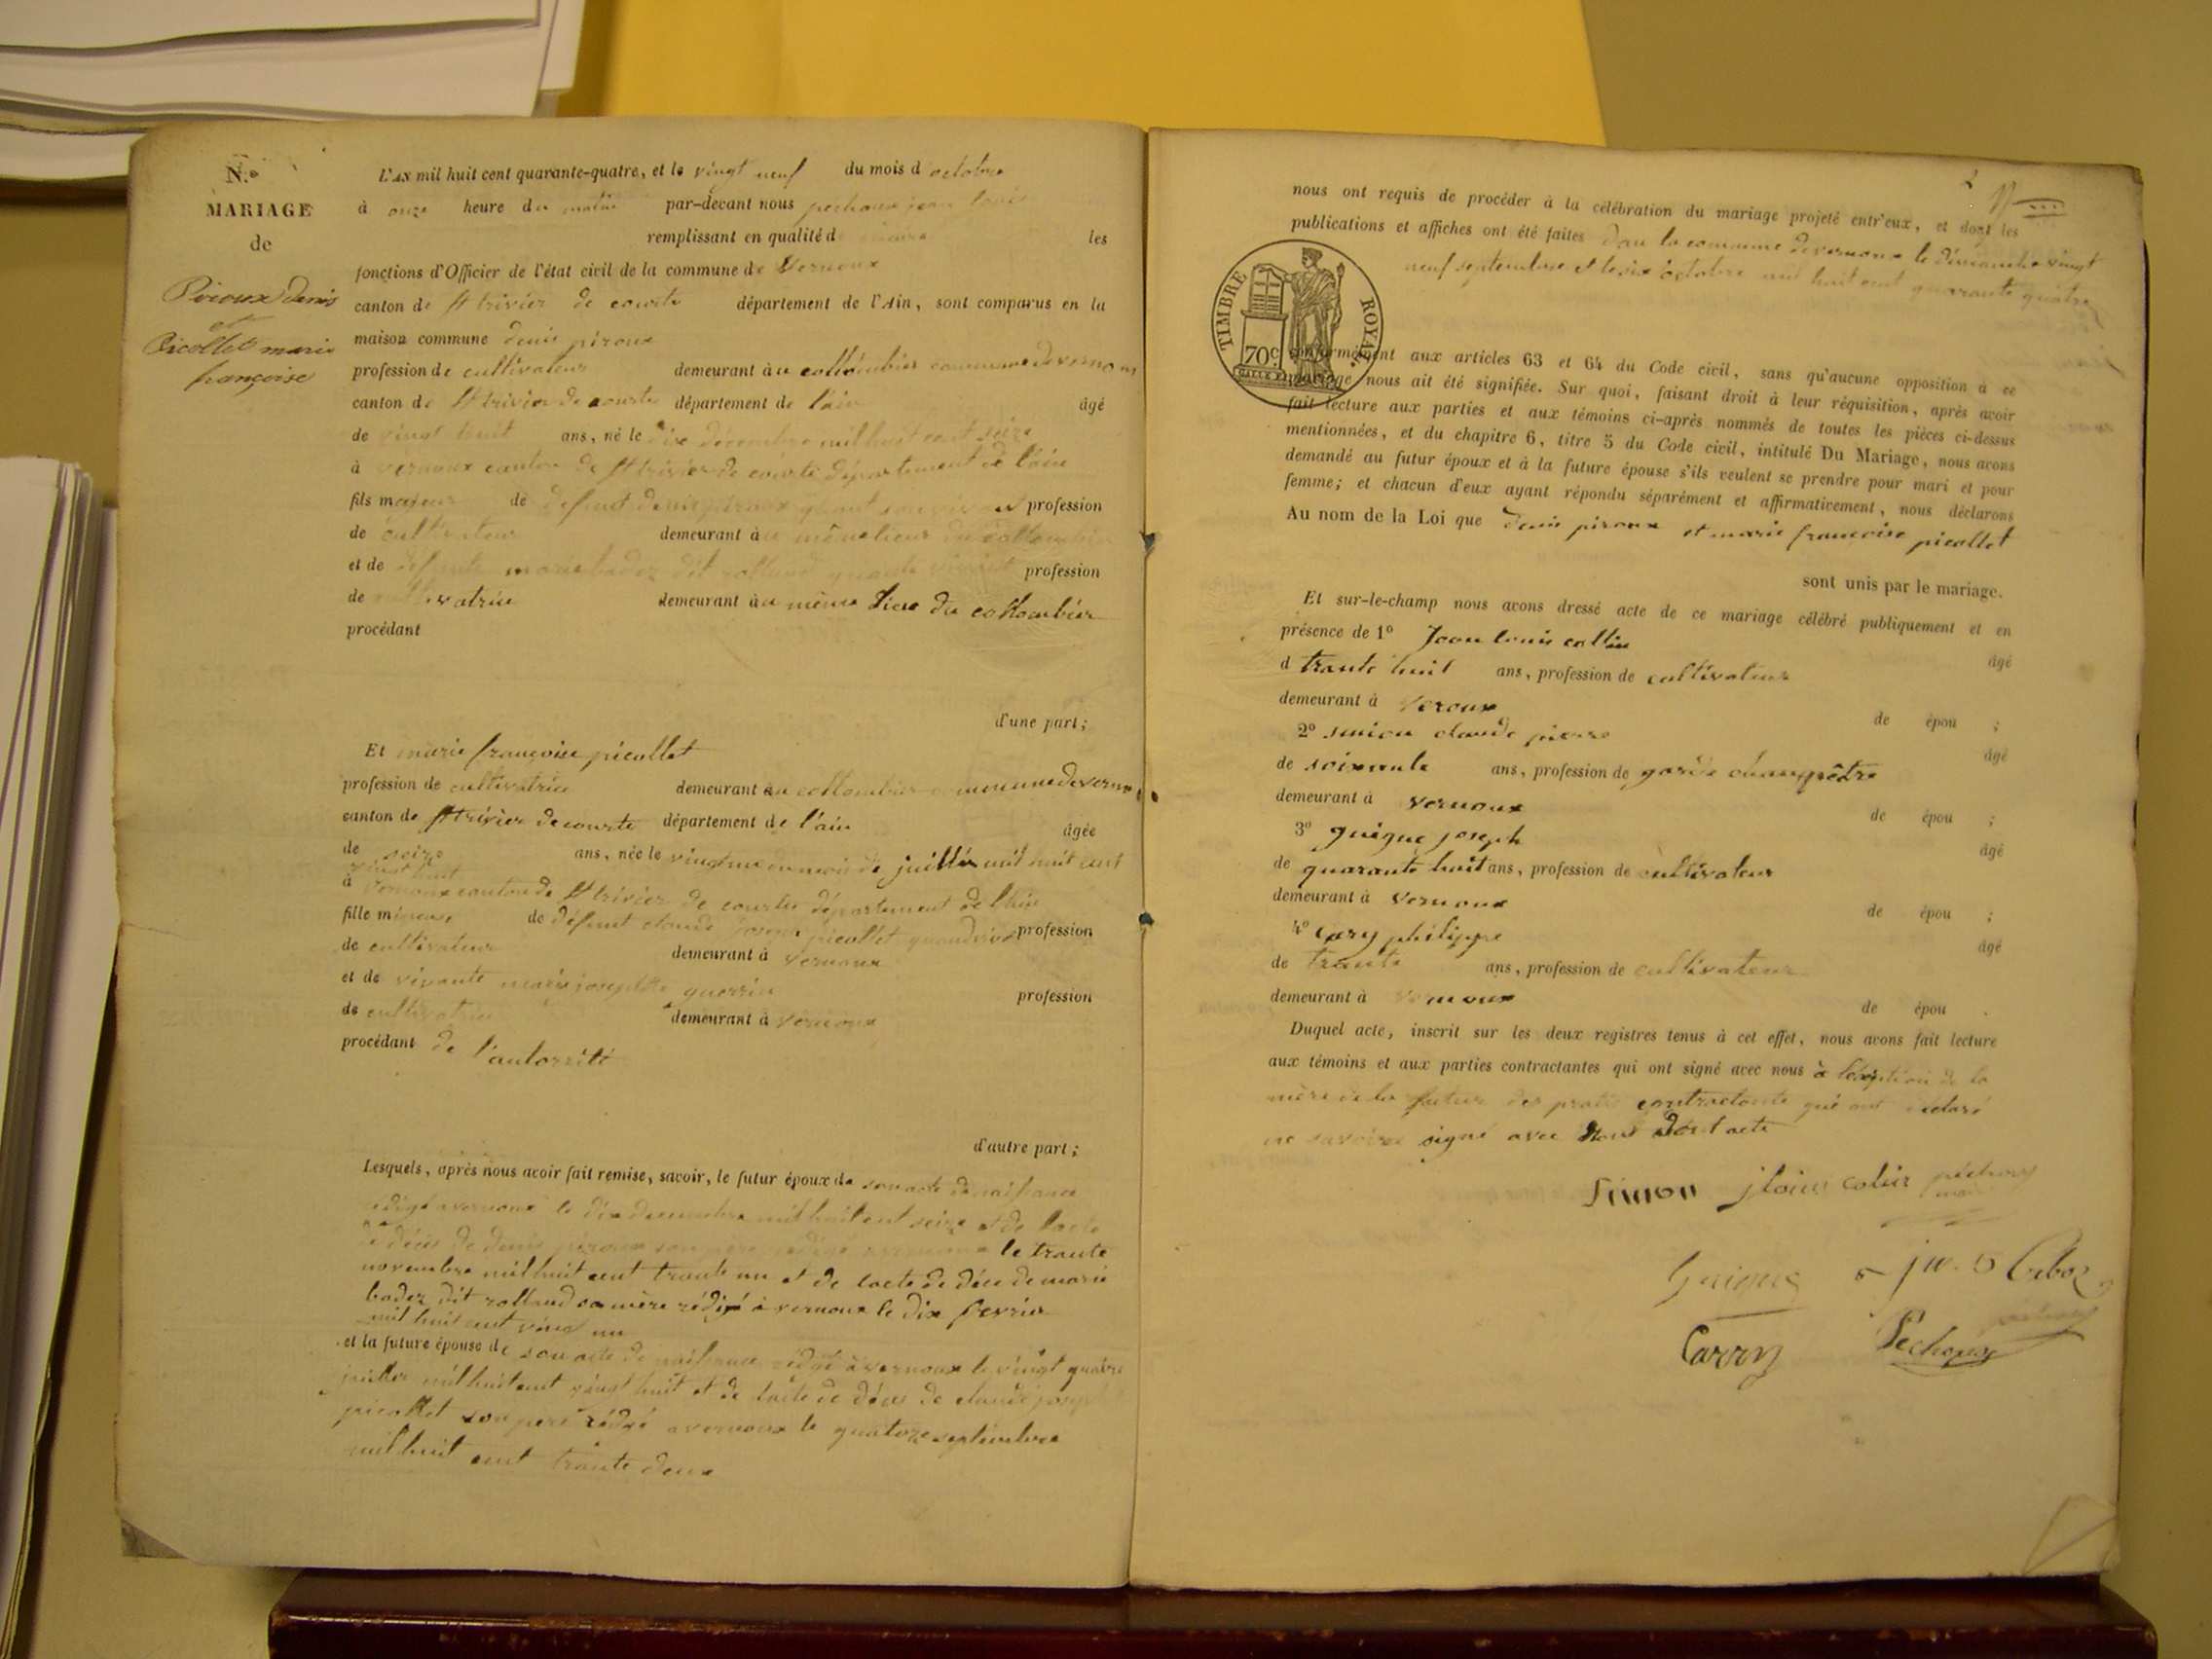 N.º
MARIAGE
de
Piroux denis
et
Picollet marie
françoise
L'AN mil huit cent quarante-quatre, et le vingt neuf du mois d octobre
à onze heure du matin par-devant nous pechoux jean louis
remplissant en qualité d maire les
fonctions d'Officier de l'état civil de la commune de Vernoux
canton de St trivier de courte département de l'Ain, sont comparus en la
maison commune denis piroux
profession de cultivateur demeurant au collombier commune de vernoux
canton de St trivier de courte département de l'ain âgé
de vingt huit ans, né le dix décembre mil huit cent seize
à vernoux canton de St trivier de courte département de l'ain
fils majeur de defunt denis piroux profession
de cultivateur demeurant au même lieu du collombier
et de defunte marie badez dit rolland profession
de cultivatrice demeurant au même lieu du collombier
procédant
d'une part;
Et marie françoise picollet
profession de cultivatrice demeurant au collombier commune de vernoux
canton de St trivier de courte département de l'ain âgée
de seize ans, née le vingt un du mois de juillier mil huit cent
vingt huit
à vernoux canton de St trivier de courte département de l'ain
fille mineure de défunt claude joseph picollet quand vivant profession
de cultivateur demeurant à vernoux
et de vivante marie josephte guerrin profession
de cultivatrice demeurant à vernoux
procédant de l'autorrité
d'autre part;
Lesquels, après nous avoir fait remise, savoir, le futur époux de son acte de naissance
rédigé a vernoux le dix decembre mil huit cent seize et de l'acte
de décès de denis piroux son père rédigé a vernoux le trante
novembre mil huit cent trante un et de l'acte de décès de marie
badez dit rolland sa mère rédigé à vernoux le dix fevrier
mil huit cent vingt un
et la future épouse de son acte de naissance rédigé à vernoux le vingt quatre
juillier mil huit cent vingt huit et de l'acte de décès de claude joseph
picollet son pere rédigé a vernoux le quatorze septembre
mil huit cent trante deux
nous ont requis de procéder à la célébration du mariage projeté entr'eux, et dont les
publications et affiches ont été faites dans la commune de vernoux le dimanche vingt
neuf septembre et le six octobre mil huit cent quarante quatre
TIMBRE ROYAL
70 c
conformément aux articles 63 et 64 du Code civil, sans qu'aucune opposition à ce
mariage nous ait été signifiée. Sur quoi, faisant droit à leur réquisition, après avoir
fait lecture aux parties et aux témoins ci-après nommés de toutes les pièces ci-dessus
mentionnées, et du chapitre 6, titre 5 du Code civil, intitulé Du Mariage, nous avons
demandé au futur époux et à la future épouse s'ils veulent se prendre pour mari et pour
femme; et chacun d'eux ayant répondu séparément et affirmativement, nous déclarons
Au nom de la Loi que denis piroux et marie françoise picollet
sont unis par le mariage.
Et sur-le-champ nous avons dressé acte de ce mariage célébré publiquement et en
présence de 1º Jean louis collin âgé
d trante huit ans, profession de cultivateur
demeurant à Veroux de épou ;
2º simion claude pierre âgé
de soixante ans, profession de garde champêtre
demeurant à vernoux de épou ;
3º guigue joseph âgé
de quarante huit ans, profession de cultivateur
demeurant à vernoux de épou ;
4º Cary philippe âgé
de trante ans, profession de cultivateur
demeurant à vernoux de épou .
Duquel acte, inscrit sur les deux registres tenus à cet effet, nous avons fait lecture
aux témoins et aux parties contractantes qui ont signé avec nous à l'éxeption de la
mère de la future des contractante qui ont déclaré
ne savoire signé avec nous dont acte
Simion j louis colin péchoux
maire
Guigue
Carry Pechoux